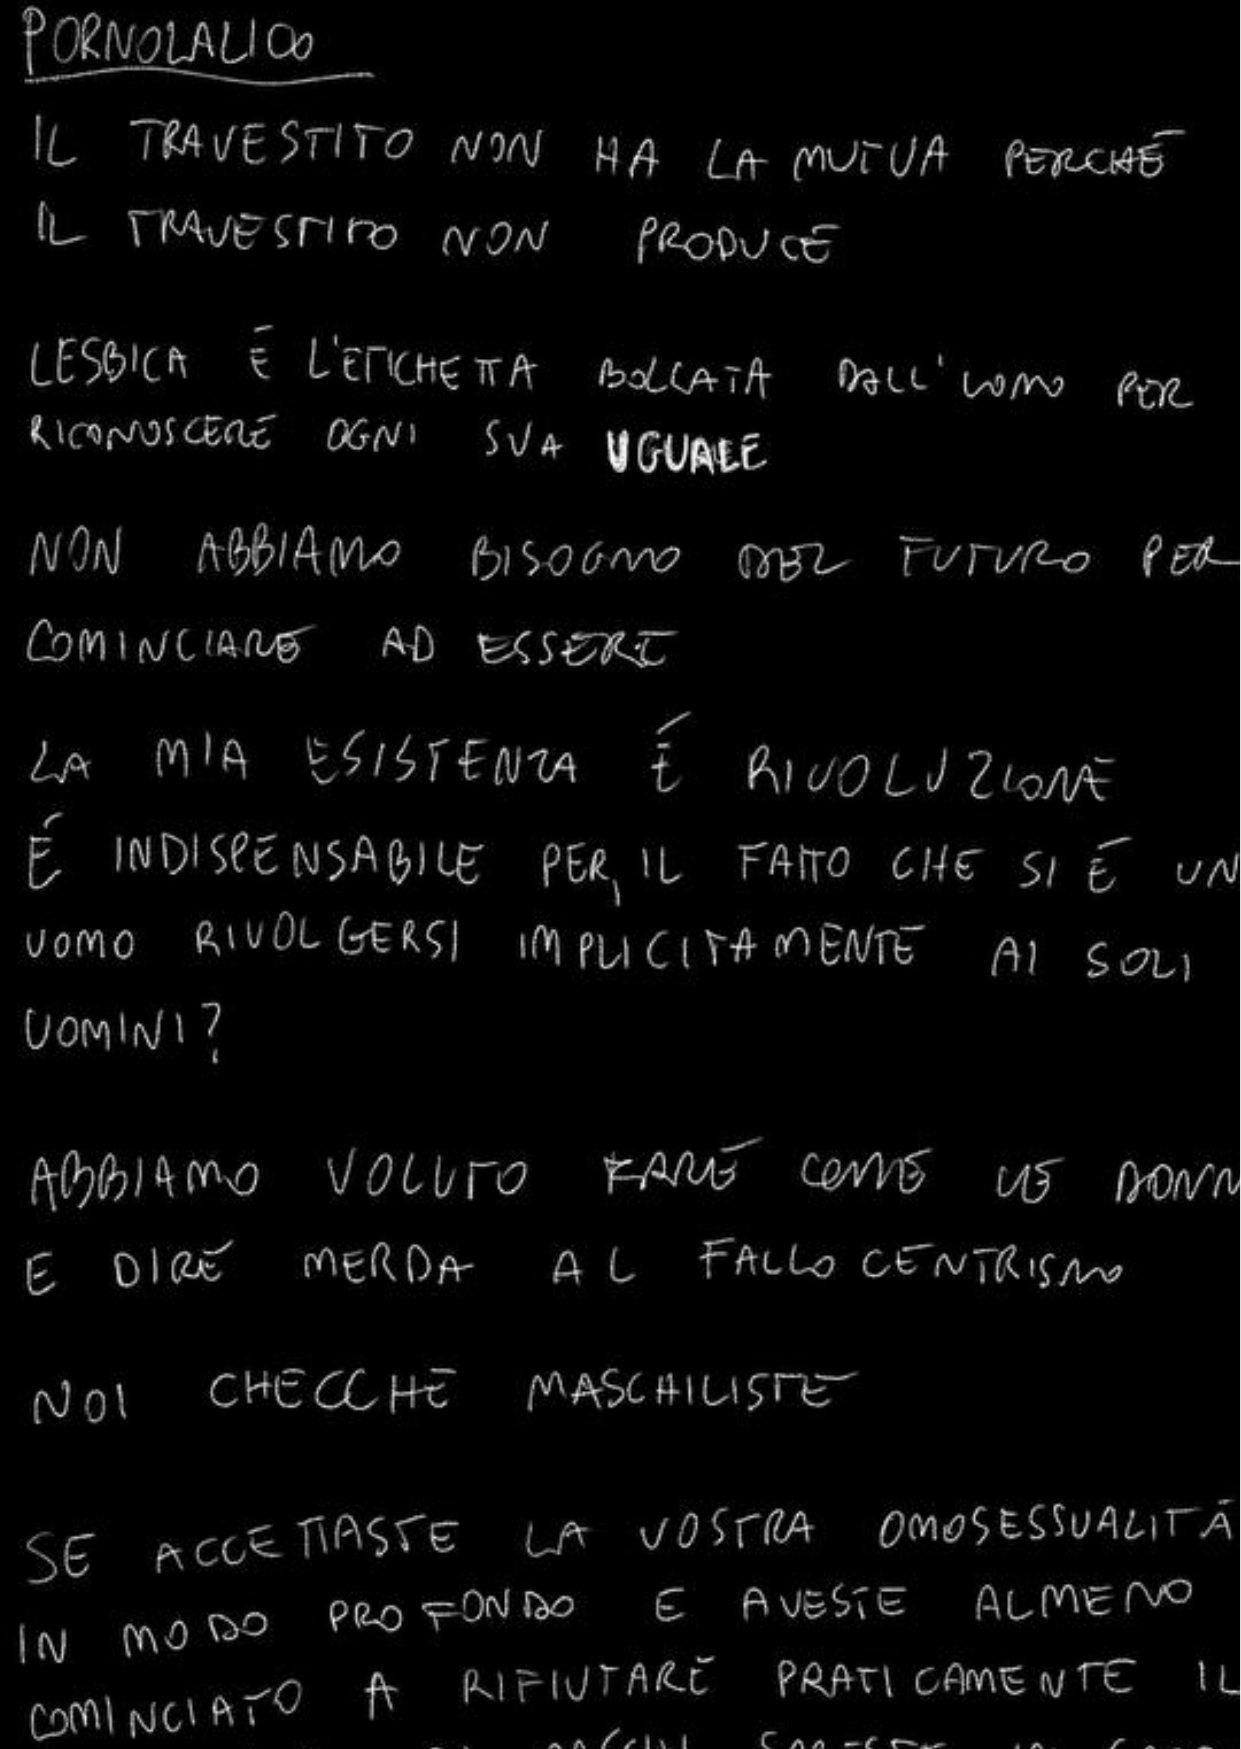 PORNOLALIOO
IL TRAVESTITO NON HA LA MUTUA PERCHÉ
IL TRAVESTITO NON PRODUCE
LESBICA É L'ETICHETTA BOLLATA DALL'UOMO PER
RICONOSCERE OGNI SUA UGUALE
NON ABBIAMO BISOGNO DEL FUTURO PER
COMINCIARE AD ESSERE
LA MIA ESISTENZA É RIVOLUZIONE
É INDISPENSABILE PER, IL FATTO CHE SI É UN
UOMO RIVOLGERSI IMPLICITAMENTE AI SOLI
UOMINI?
ABBIAMO VOLUTO FARE COME LE DONN
E DIRE MERDA AL FALLOCENTRISMO
NOI CHECCHE MASCHILISTE
SE ACCETTASTE LA VOSTRA OMOSESSUALITÁ
IN MODO PROFONDO E AVESTE ALMENO
COMINCIATO A RIFIUTARE PRATICAMENTE IL